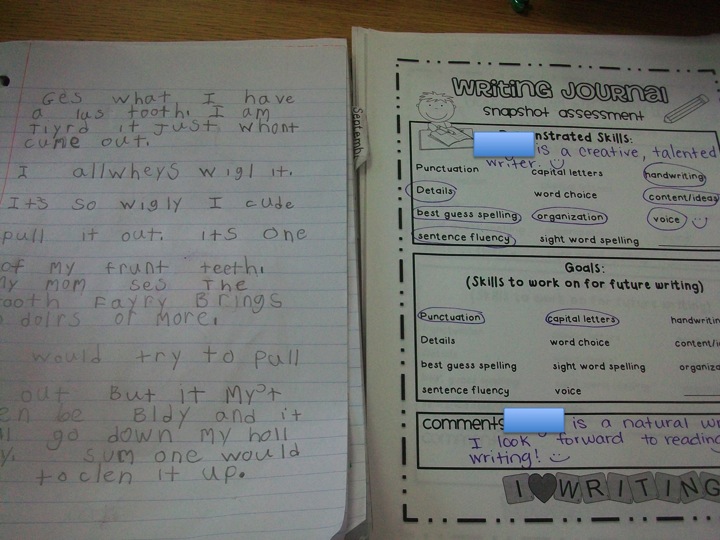 Ges what I have
a lus tooth. I am
Tiyrd it just whont
cume out.
I allwheys wigl it.
It's so wigly I cude
pull it out. its one
of my frunt teeth.
My mom ses The
Tooth Fayry Brings
dolrs of more.
would try to pull
out But it My^st
en be Bldy and it
go down my holl
sum one would
to clen it up.
Septemb
WRITING JOURNAL
snapshot assessment
Demonstrated Skills:
is a creative, talented
writer.
Punctuation capital letters handwriting
Details word choice content/ideas
best guess spelling organization voice
sentence fluency sight word spelling
Goals:
(Skills to work on for future writing)
Punctuation capital letters handwritin
Details word choice content/i
best guess spelling sight word spelling organiz
sentence fluency voice
comments is a natural wr
I look forward to reading
writing!
I WRITING